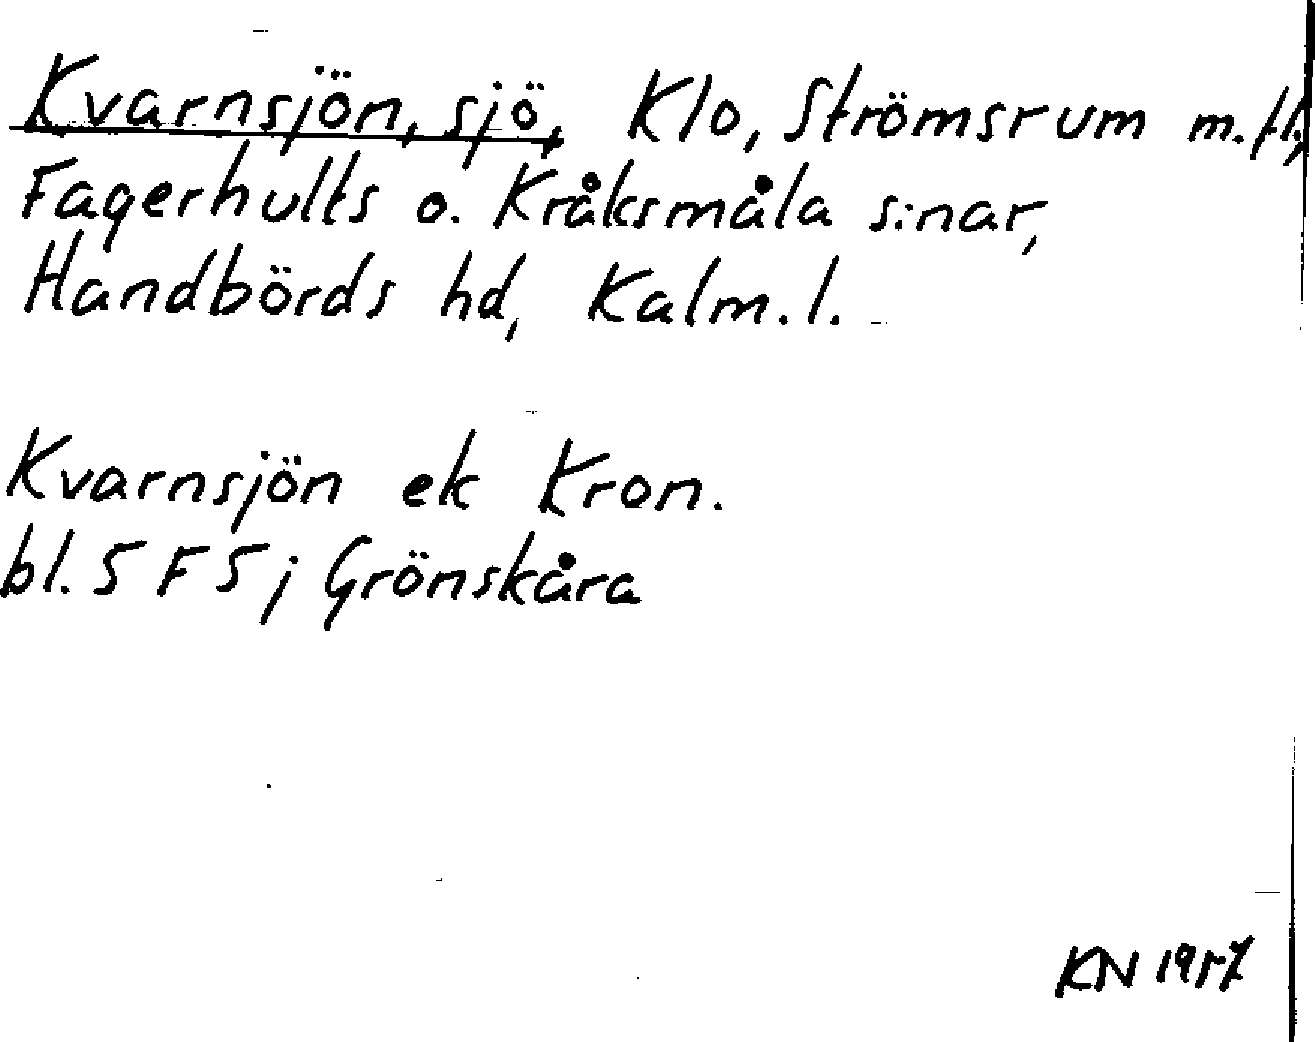 Kvarnsjön, sjö, Klo, Strömsrum m.fl.,
Fagerhults o. Kråksmåla s:nar,
Handbörds hd, Kalm. l.
Kvarnsjön ek Kron.
bl. 5 F 5 j Grönskåra
KN 1957